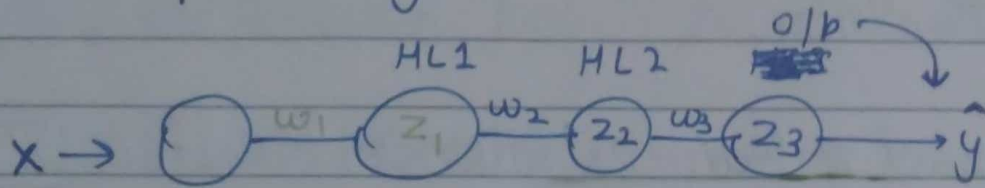 o/p
HL1 HL2
X → w1 z1 w2 z2 w3 z3 ŷ